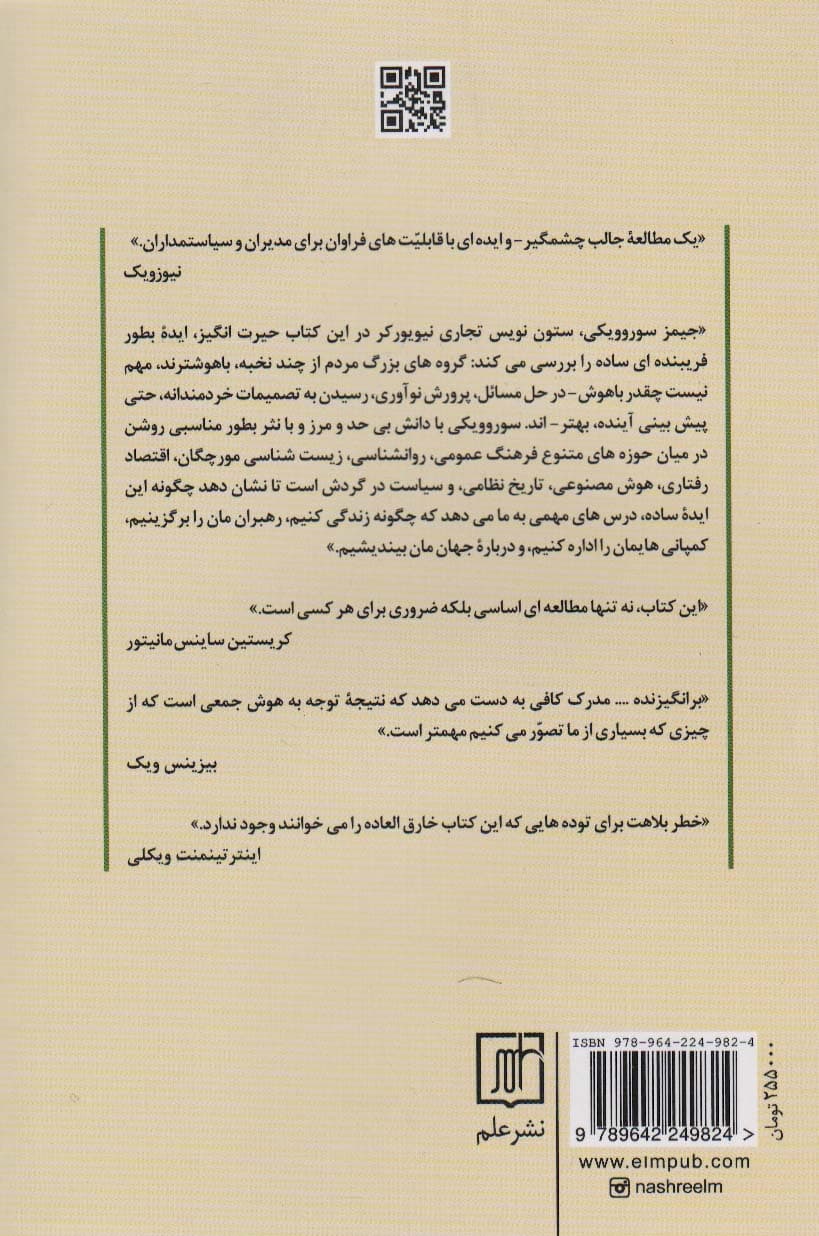 «یک مطالعهٔ جالب چشمگیر- و ایده ای با قابلیّت های فراوان برای مدیران و سیاستمداران.»
نیوزویک
«جیمز سوروویکی، ستون نویس تجاری نیویورکر در این کتاب حیرت انگیز، ایدهٔ بطور
فریبنده ای ساده را بررسی می کند: گروه های بزرگ مردم از چند نخبه، باهوشترند، مهم
نیست چقدر باهوش- در حل مسائل، پرورش نوآوری، رسیدن به تصمیمات خردمندانه، حتی
پیش بینی آینده، بهتر- اند. سوروویکی با دانش بی حد و مرز و با نثر بطور مناسبی روشن
در میان حوزه های متنوع فرهنگ عمومی، روانشناسی، زیست شناسی مورچگان، اقتصاد
رفتاری، هوش مصنوعی، تاریخ نظامی، و سیاست در گردش است تا نشان دهد چگونه این
ایدهٔ ساده، درس های مهمی به ما می دهد که چگونه زندگی کنیم، رهبران مان را برگزینیم،
کمپانی هایمان را اداره کنیم، و دربارهٔ جهان مان بیندیشیم.»
«این کتاب، نه تنها مطالعه ای اساسی بلکه ضروری برای هر کسی است.»
کریستین ساینس مانیتور
«برانگیزنده .... مدرک کافی به دست می دهد که نتیجهٔ توجه به هوش جمعی است که از
چیزی که بسیاری از ما تصوّر می کنیم مهمتر است.»
بیزینس ویک
«خطر بلاهت برای توده هایی که این کتاب خارق العاده را می خوانند وجود ندارد.»
اینترتینمنت ویکلی
ISBN 978-964-224-982-4
9 789642 249824 >
۲۵۵۰۰۰ تومان
نشر علم
www.elmpub.com
nashreelm